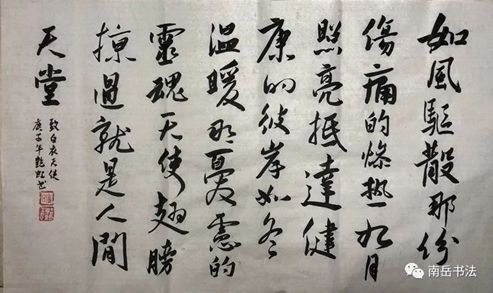 如風驅散那份
傷痛的燥热如月
照亮抵達健
康的彼岸如冬
温暖那憂慮的
靈魂天使翅膀
掠過就是人間
天堂
致白衣天使
庚子年艶虹书
南岳书法